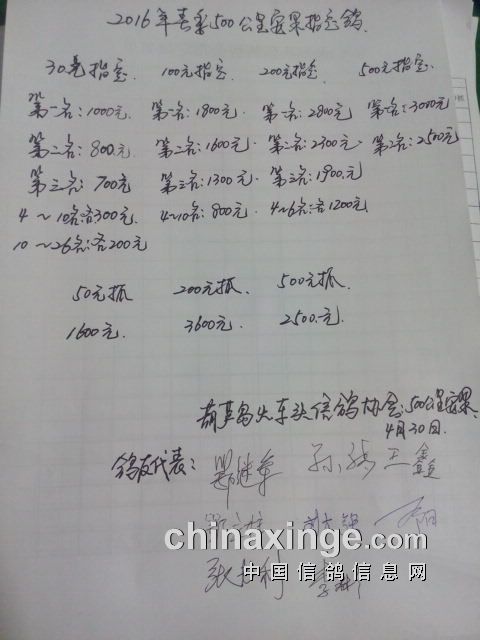 2016年春季500公里安果指定鸽.
30元指定. 100元指定. 200元指定 500元指定.
第一名:1000元. 第一名:1800元. 第一名:2800元 第一名:3000元
第二名:800.元 第二名:1600元. 第二名:2300元. 第二名:2500元
第三名:700元 第三名:1300元. 第三名:1900元.
4~10名:各300元. 4~10名:800元. 4~6名:各1200元
10~26名:各200元
50元抓 200元抓. 500元抓.
1600元. 3600元. 2500.元.
葫芦岛火车头信鸽协会:500公里安果.
4月30日.
鸽友代表: 王鑫
chinaxinge.com
中国信鸽信息网